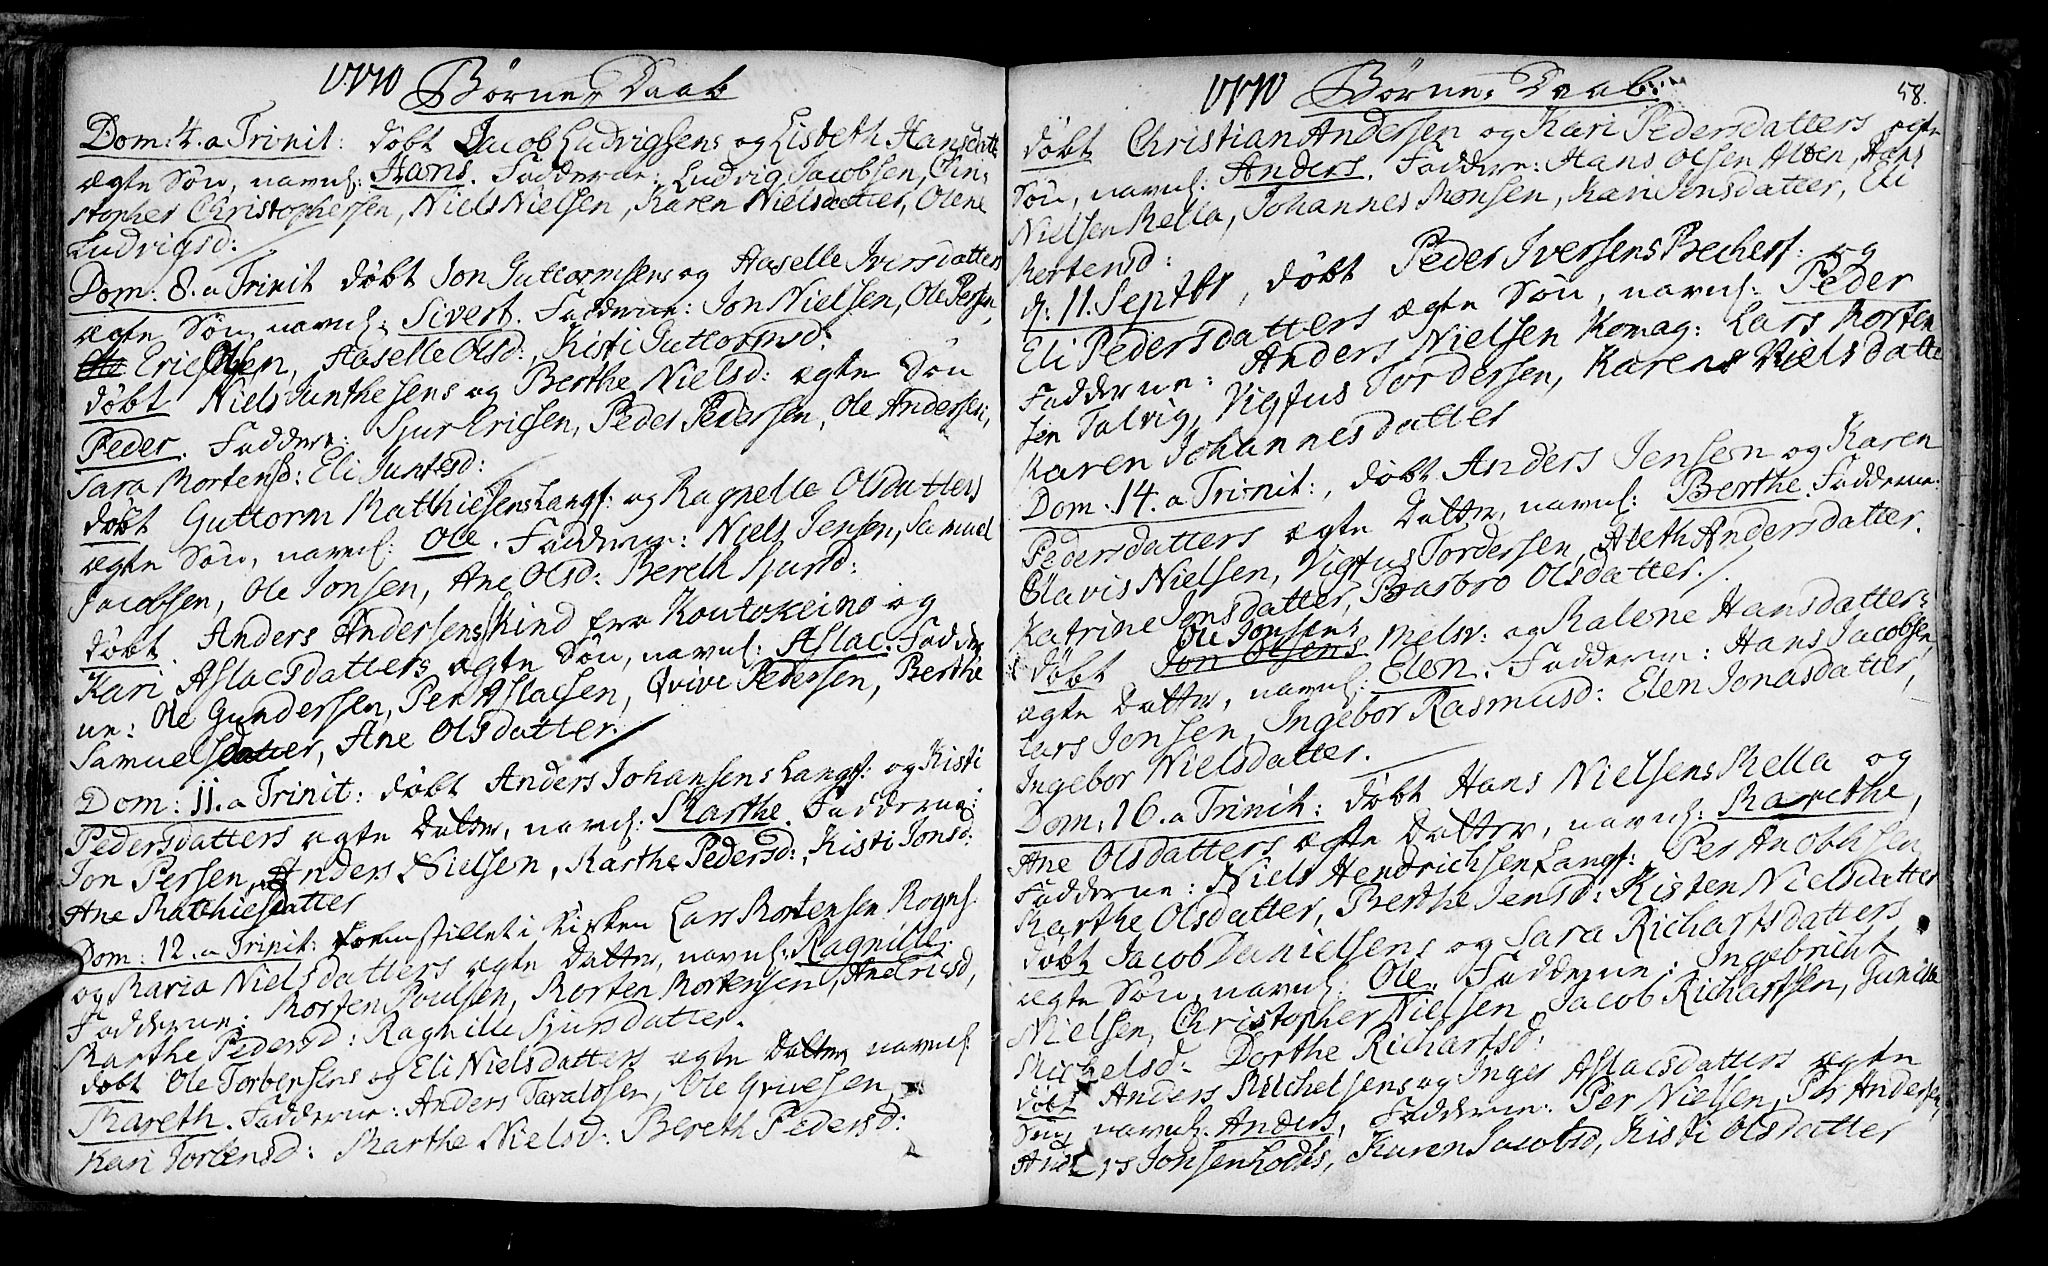 1770 Børne Daab
Dom: 4. a Trinit: døbt Jacob Ludvigsens og Lisbeth Hansdatt
ægte Søn, navnl: Hans. Fadderne: Ludvig Jacobsen, Chri-
stopher Christophersen, Niels Nielsen, Karen Nielsdatter, Olene
Ludvigsd:
Dom: 8. a Trinit døbt Jon Guttormsens og Haselle Iversdatters
ægte Søn, navnl: Sivert. Fadderne: Jon Nielsen, Ole Persen,
Eric Olsen, Haselle Olsd:, Kisti Guttormsd:
døbt Niels Junthesens og Berthe Nielsd: ægte Søn
Peder. Faddere: Sjur Ericsen, Peder Pedersen, Ole Andersen,
Sara Mortensd: Eli Juntesd:
døbt Guttorm Matthiesens Langf: og Ragnelle Olsdatters
ægte Søn, navnl: Ole. Fadderne: Niels Jensen, Samuel
Jacobsen, Ole Jonsen, Ane Olsd: Bereth Sjursd:
døbt. Anders Andersens Kind fra Koutokeino og
Kari Aslacsdatters ægte Søn, navnl: Aslac. Fadder
ne: Ole Gundersen, Per Aslacsen, Qvive Pedersen, Berthe
Samuelsdatter, Ane Olsdatter.
Dom: 11. a Trinit: døbt Anders Johansens Langf: og Kisti
Pedersdatters ægte Datter, navnl: Marthe. Fadderne:
Jon Persen, Anders Nielsen, Marthe Pedersd:, Kisti Jonsd:
Ane Matthiesdatter
Dom: 12. a Trinit: fremstillet i Kirken Lars Mortensen Rogns.
og Maria Nielsdatters ægte Datter, navnl: Ragnille.
Fadderne: Morten Poulsen, Morten Mortensen, Ane Ericsd,
Marthe Pedersd: Ragnille Sjursdatter.
døbt Ole Torbensens og Eli Nielsdatters ægte Datter navnl:
Mareth. Fadderne: Anders Taraldsen, Ole Qvivesen,
Kari Torbensd: Marthe Nielsd: Bereth Pedersd:
1770 Børne Daab: 58.
døbt Christian Andersen og Kari Pedersdatters ægte
Søn, navnl: Anders. Faddere: Hans Olsen Alten, Hans
Nielsen Mella, Johannes Monsen, Kari Jonsdatter, Eli
Mortensd:
d: 11. Septbr, døbt Peder Iversens Becherf: og
Eli Pedersdatters ægte Søn, navnl: Peder
Fadderne: Anders Nielsen Komag: Lars Morten
sen Talvig, Vigfus Tordersen, Karen Nielsdatte
Karen Johannesdatter
Dom: 14. a Trinit:, døbt Anders Jensen og Karen
Pedersdatters ægte Datter, navnl: Berthe. Fadderne:
Olavis Nielsen, Vigfus Tordersen, Aleth Andersdatter.
Katrine Jonsdatter, Barbro Olsdatter.
Ole Jonsens
døbt Jon Olsens Melsv: og Malene Hansdatters
ægte Datter, navnl: Elen. Fadderne: Hans Jacobsen,
Lars Jonsen, Ingebor Rasmusd: Elen Jonasdatter,
Ingebor Nielsdatter.
Dom: 16. a Trinit: døbt Hans Nielsens Mella og
Ane Olsdatters ægte Datter, navnl: Marethe,
Fadderne: Niels Hendrichsen Langf: Per Anobbisen
Marthe Olsdatter, Berthe Jensd: Kisten Nielsdatter
døbt Jacob Danielsens og Sara Richartsdatters
ægte Søn, navnl: Ole. Fadderne: Ingebricht
Nielsen, Christopher Nielsen, Jacob Richartsen, Gunild
Michelsd: Dorthe Richartsd:
døbt Anders Michelsens og Inger Aslacsdatters ægte
Søn, navnl. Anders, Fadderne: Per Nielsen, Per Andersen
Anders Jonsen Holds, Karen Jacobsd, Kisti Olsdatter